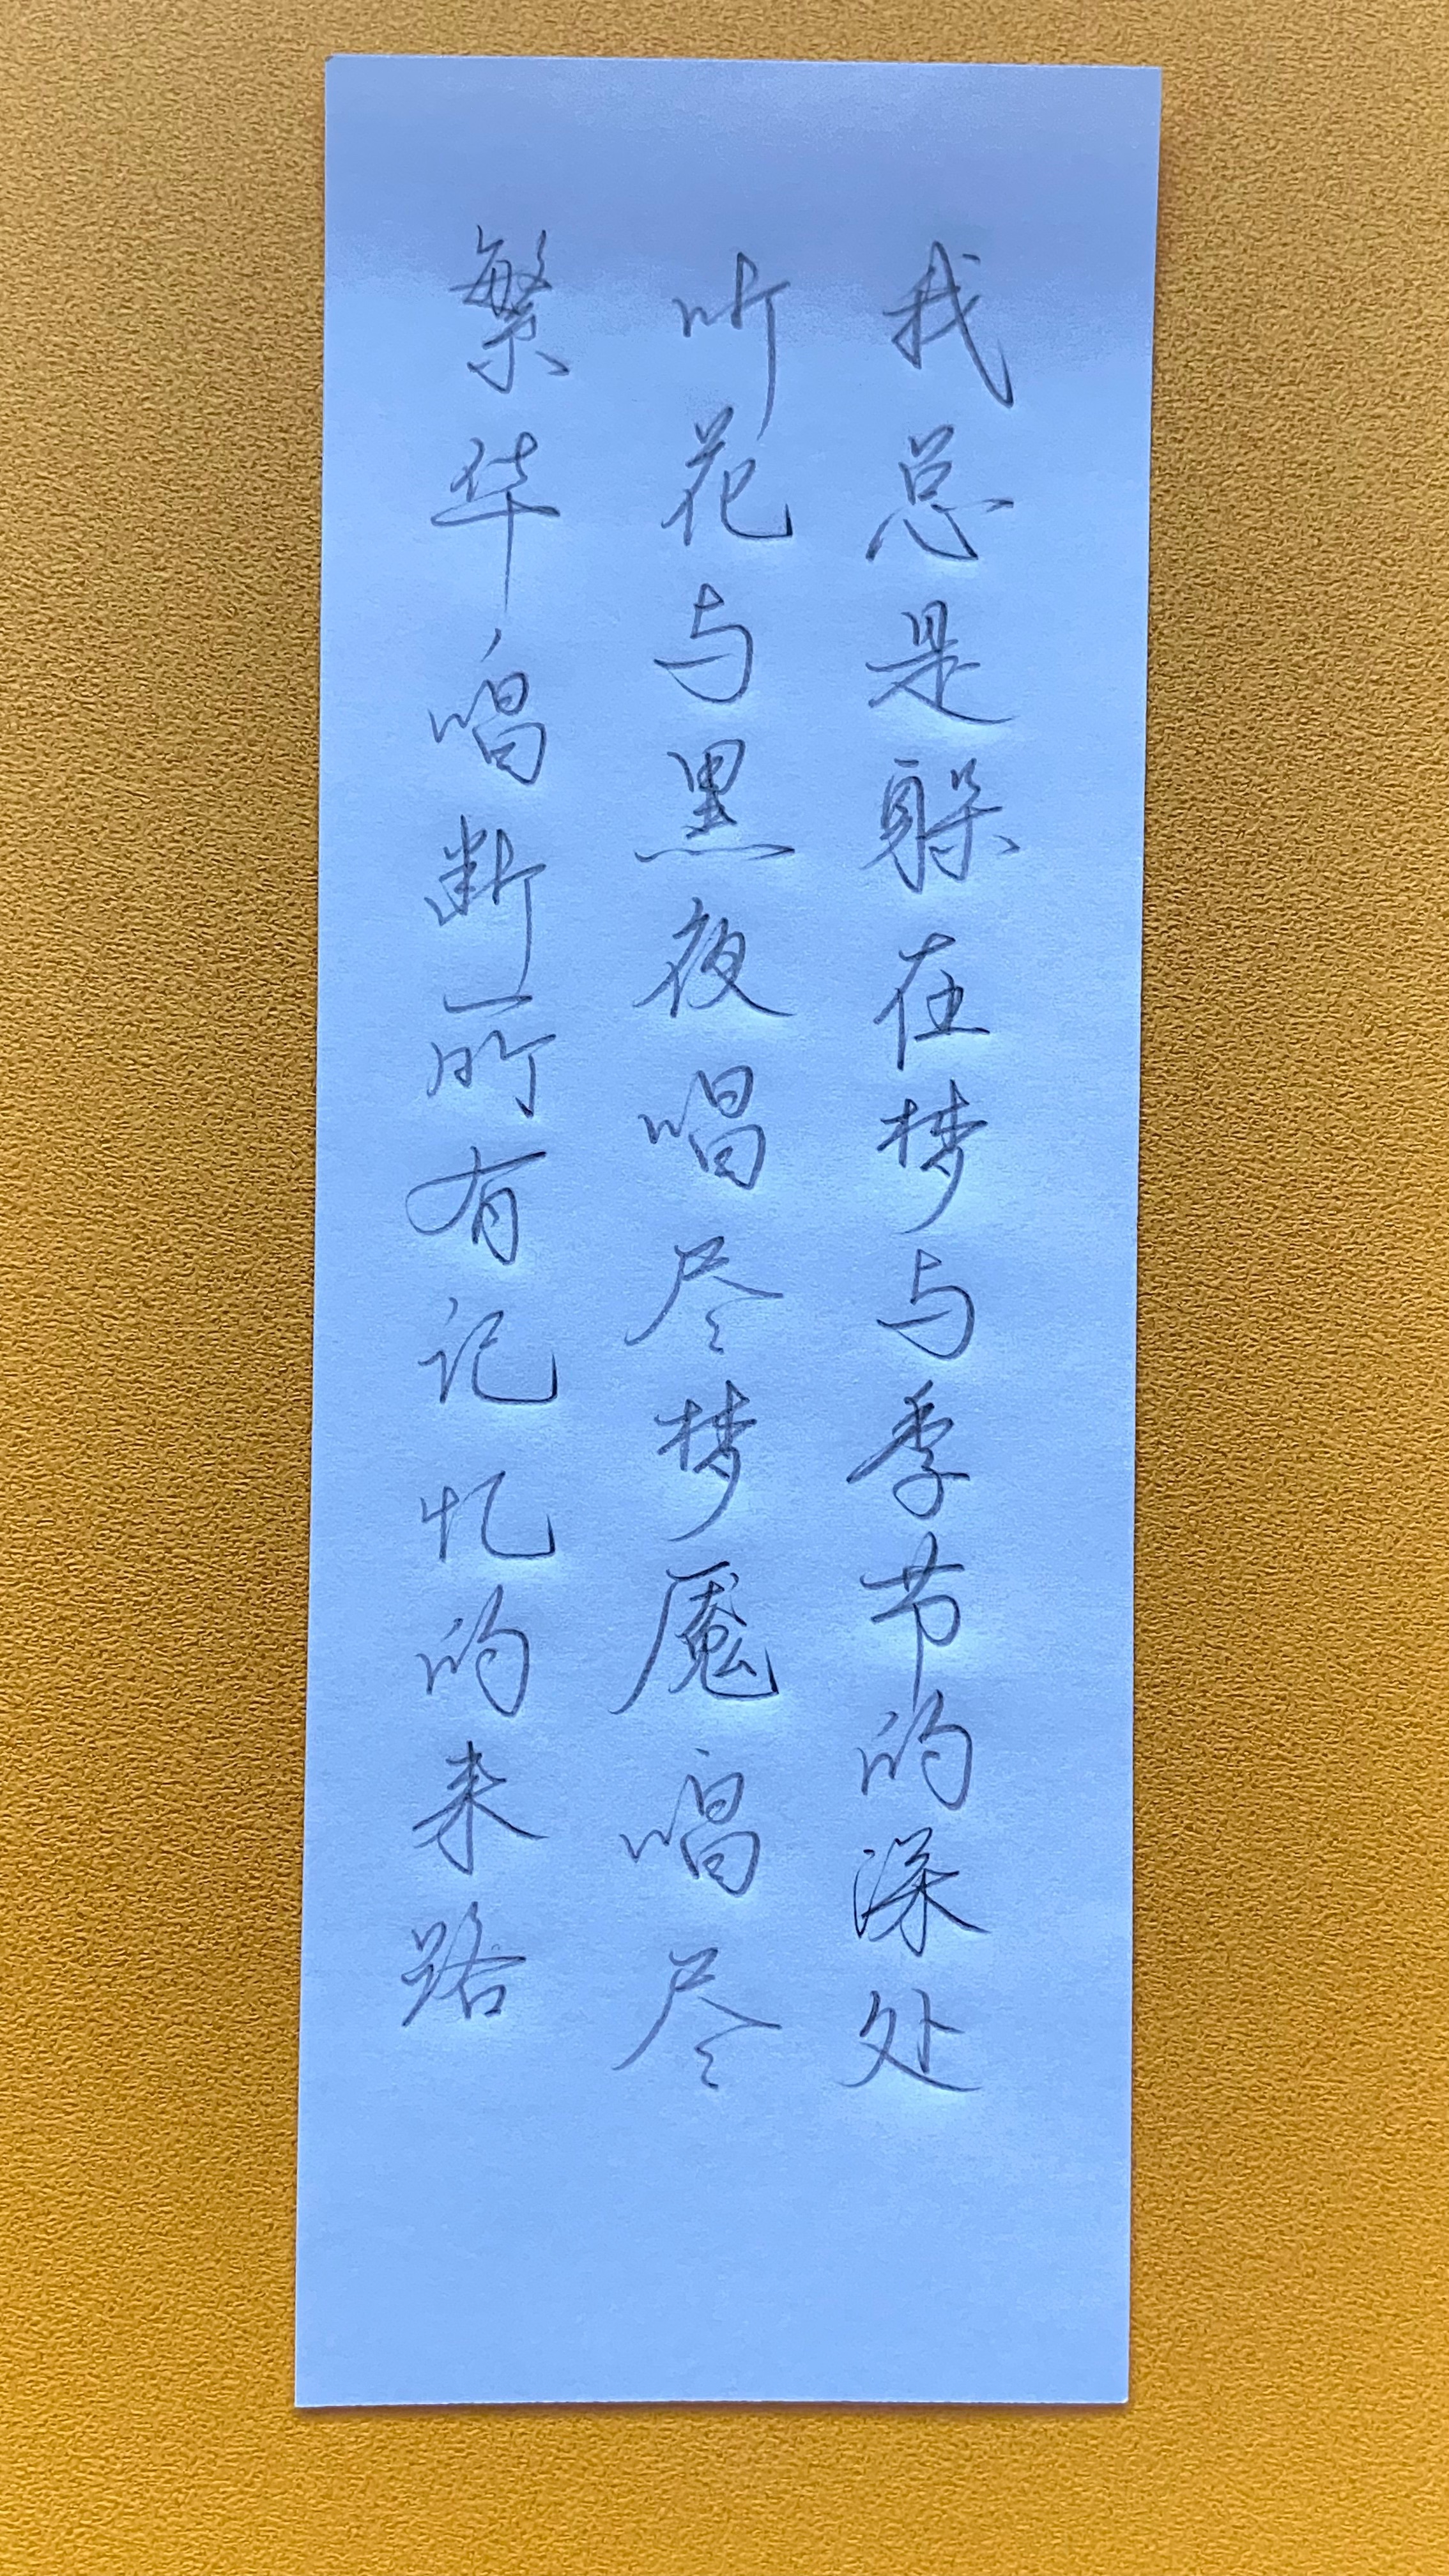 我总是躲在梦与季节的深处
听花与黑夜唱尽梦魇唱尽
繁华唱断所有记忆的来路